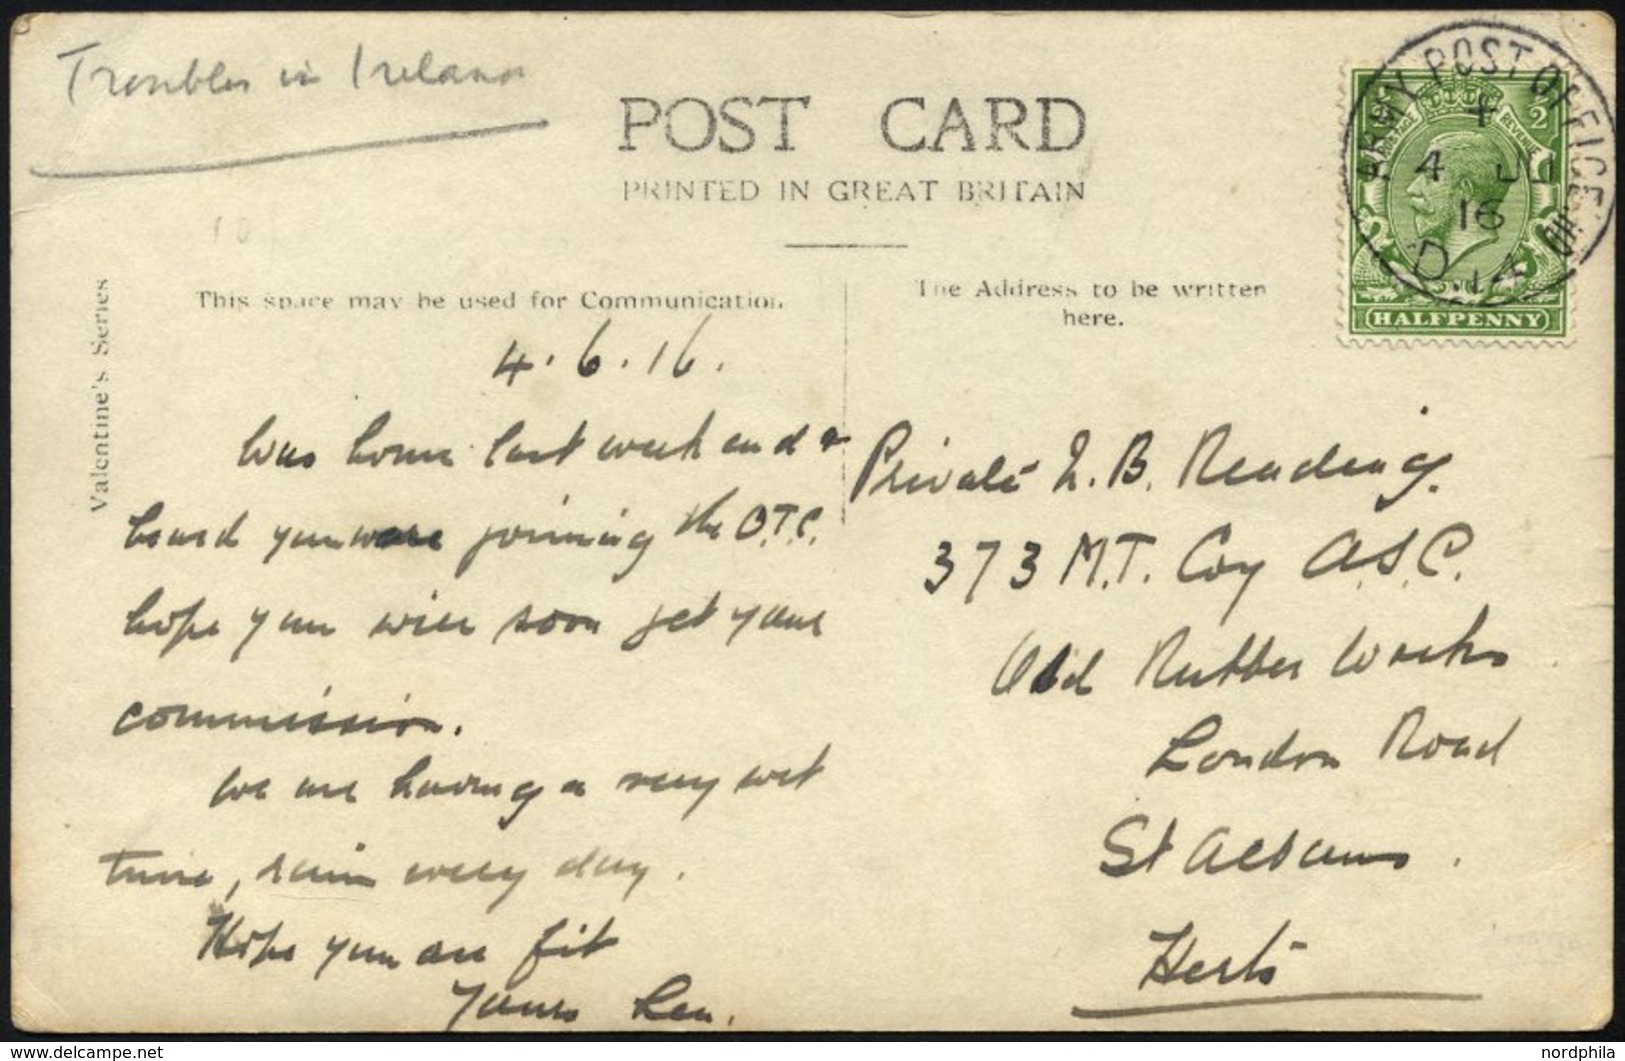 Troubles in Ireland
POST CARD
PRINTED IN GREAT BRITAIN
ARMY POST OFFICE
4
4 JU
16
D.14
HALFPENNY
10
Valentine's Series
This space may be used for Communication.
The Address to be written
here.
4.6.16.
Was home last week end &
heard you were joining the O.T.C.
hope you will soon get your
commission.
We are having a very wet
time, rain every day.
Hope you are fit
Yours Len.
Private L. B. Reading.
373 M.T. Coy A.S.C.
Old Rubber Works
London Road
St Albans.
Herts
delcampe.net
nordphila